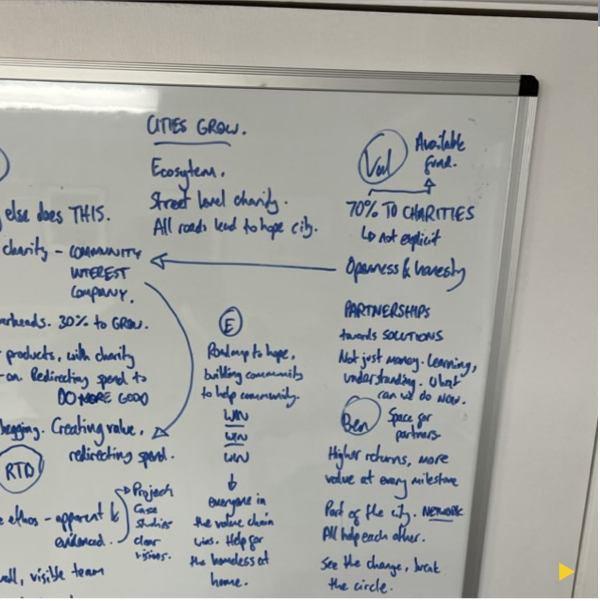 CITIES GROW.
Ecosystem.
Street level charity.
All roads lead to hope city.
Val
Available
fund.
70% TO CHARITIES
not explicit
Openness & honesty
else does THIS.
charity - COMMUNITY
INTEREST
COMPANY.
30% to GROW.
products, with charity
on. Redirecting spend to
DO MORE GOOD
begging. Creating value,
redirecting spend.
RTB
ethos - apparent &
evidenced.
Project
Case
studies
clear
visions.
visible team
E
Roadmap to hope,
building community
to help community.
WIN
WIN
WIN
everyone in
the value chain
wins. Help for
the homeless at
home.
PARTNERSHIPS
towards SOLUTIONS
Not just money. Learning,
understanding. What
can we do NOW.
Ben
Space for
partners.
Higher returns, more
value at every milestone
Part of the city. NETWORK
All help each other.
See the change, break
the circle.